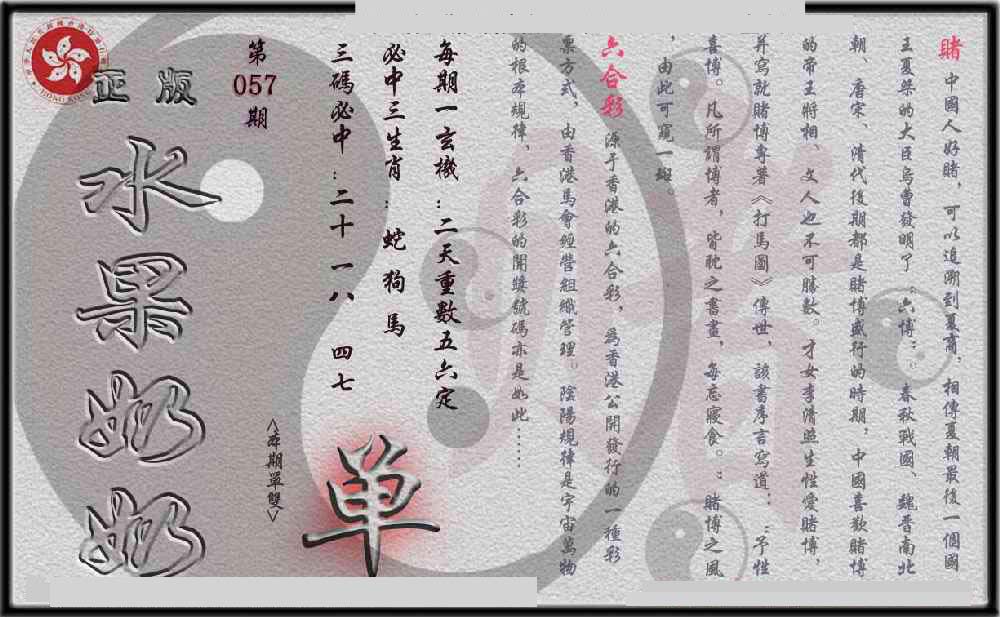 賭 中國人好賭，可以追溯到夏商．相傳夏朝最後一個國
王夏桀的大臣烏曹發明了“六博”．春秋戰國、魏晉南北
朝、唐宋、清代後期都是賭博盛行的時期，中國喜歡賭博
的帝王將相、文人也不可勝數。才女李清照生性愛賭博，
并寫就賭博專著《打馬圖》傳世，該書序言寫道：“予性
喜博。凡所謂博者，皆耽之晝畫，每忘寢食。”賭博之風
，由此可窺一斑。
六合彩 源于香港的六合彩，為香港公開發行的一種彩
票方式，由香港馬會經營組織管理。陰陽規律是宇宙萬物
的根本規律，六合彩的開獎號碼亦是如此……
每期一玄機：二天重數五六定
必中三生肖：蛇狗馬
三碼必中：二十 一八 四七
第
057
期
單
<本期單雙>
正版
水果奶奶